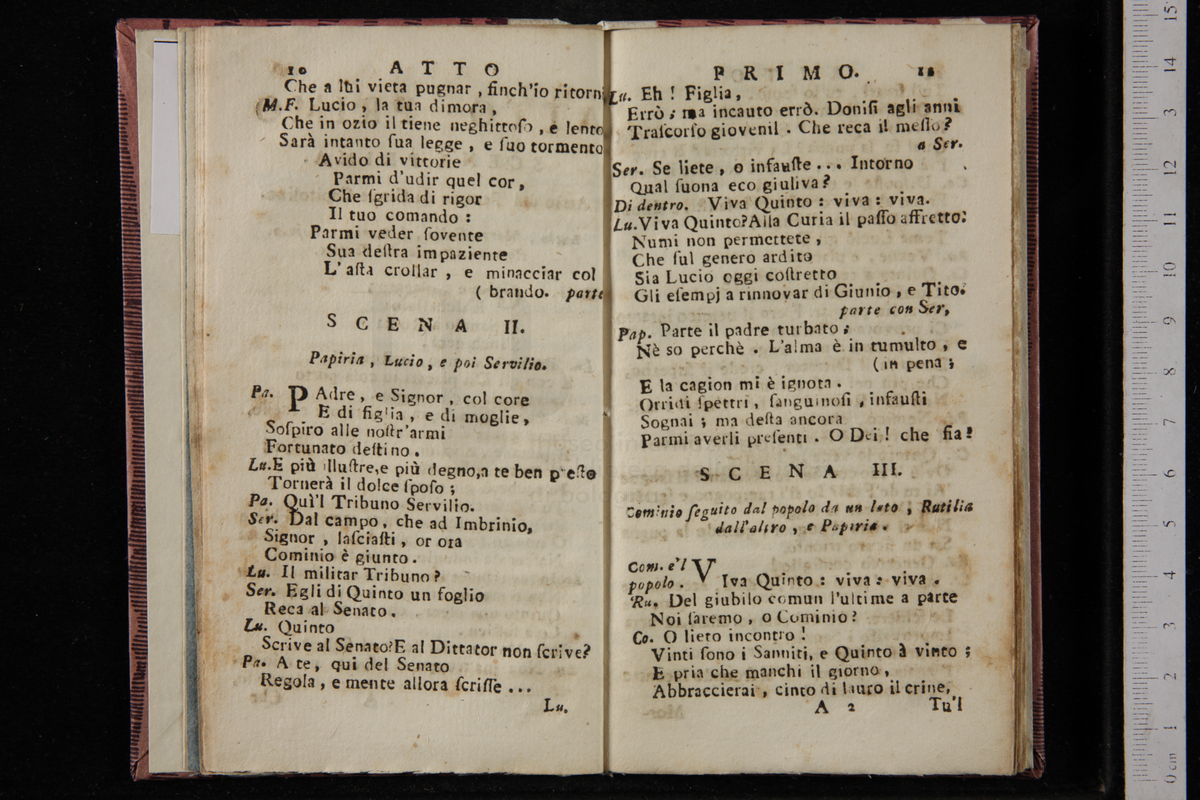 10 ATTO
Che a lui vieta pugnar, ſinch'io ritorni
(M.F. Lucio, la tua dimora,
Che in ozio il tiene neghittoſo, e lento
Sarà intanto ſua legge, e ſuo tormento
Avido di vittorie
Parmi d'udir quel cor,
Che ſgrida di rigor
Il tuo comando :
Parmi veder ſovente
Sua deſtra impaziente
L'aſta crollar, e minacciar col
( brando. parte
SCENA II.
Papiria, Lucio, e poi Servilio.
Pa. PAdre, e Signor, col core
E di figlia, e di moglie,
Soſpiro alle noſtr'armi
Fortunato deſtino.
Lu.E più illuſtre,e più degno,a te ben preſto
Tornerà il dolce ſpoſo ;
Pa. Quì'l Tribuno Servilio.
Ser. Dal campo, che ad Imbrinio,
Signor, laſciaſti, or ora
Cominio è giunto.
Lu. Il militar Tribuno?
Ser. Egli di Quinto un foglio
Reca al Senato.
Lu. Quinto
Scrive al Senato?E al Dittator non ſcrive?
Pa. A te, qui del Senato
Regola, e mente allora ſcriſſe ...
Lu.
PRIMO. 11
Lu. Eh ! Figlia,
Errò ; ma incauto errò. Doniſi agli anni
Traſcorſo giovenil. Che reca il meſſo?
a Ser.
Ser. Se liete, o infauſte ... Intorno
Qual ſuona eco giuliva?
Di dentro. Viva Quinto : viva : viva.
Lu.Viva Quinto?Alla Curia il paſſo affretto:
Numi non permettete,
Che ſul genero ardito
Sia Lucio oggi coſtretto
Gli eſempj a rinnovar di Giunio, e Tito.
parte con Ser,
Pap. Parte il padre turbato ;
Nè so perchè. L'alma è in tumulto, e
(in pena ;
E la cagion mi è ignota.
Orridi ſpettri, ſanguinoſi, infauſti
Sognai ; ma deſta ancora
Parmi averli preſenti. O Dei ! che fia?
SCENA III.
Cominio ſeguito dal popolo da un lato, Rutilia
dall'altro, e Papiria.
Com. e'l
popolo. VIva Quinto : viva : viva.
Ru. Del giubilo comun l'ultime a parte
Noi ſaremo, o Cominio?
Co. O lieto incontro !
Vinti ſono i Sanniti, e Quinto à vinto ;
E pria che manchi il giorno,
Abbraccierai, cinto di lauro il crine,
A 2 Tu'l
0 cm 1 2 3 4 5 6 7 8 9 10 11 12 13 14 15